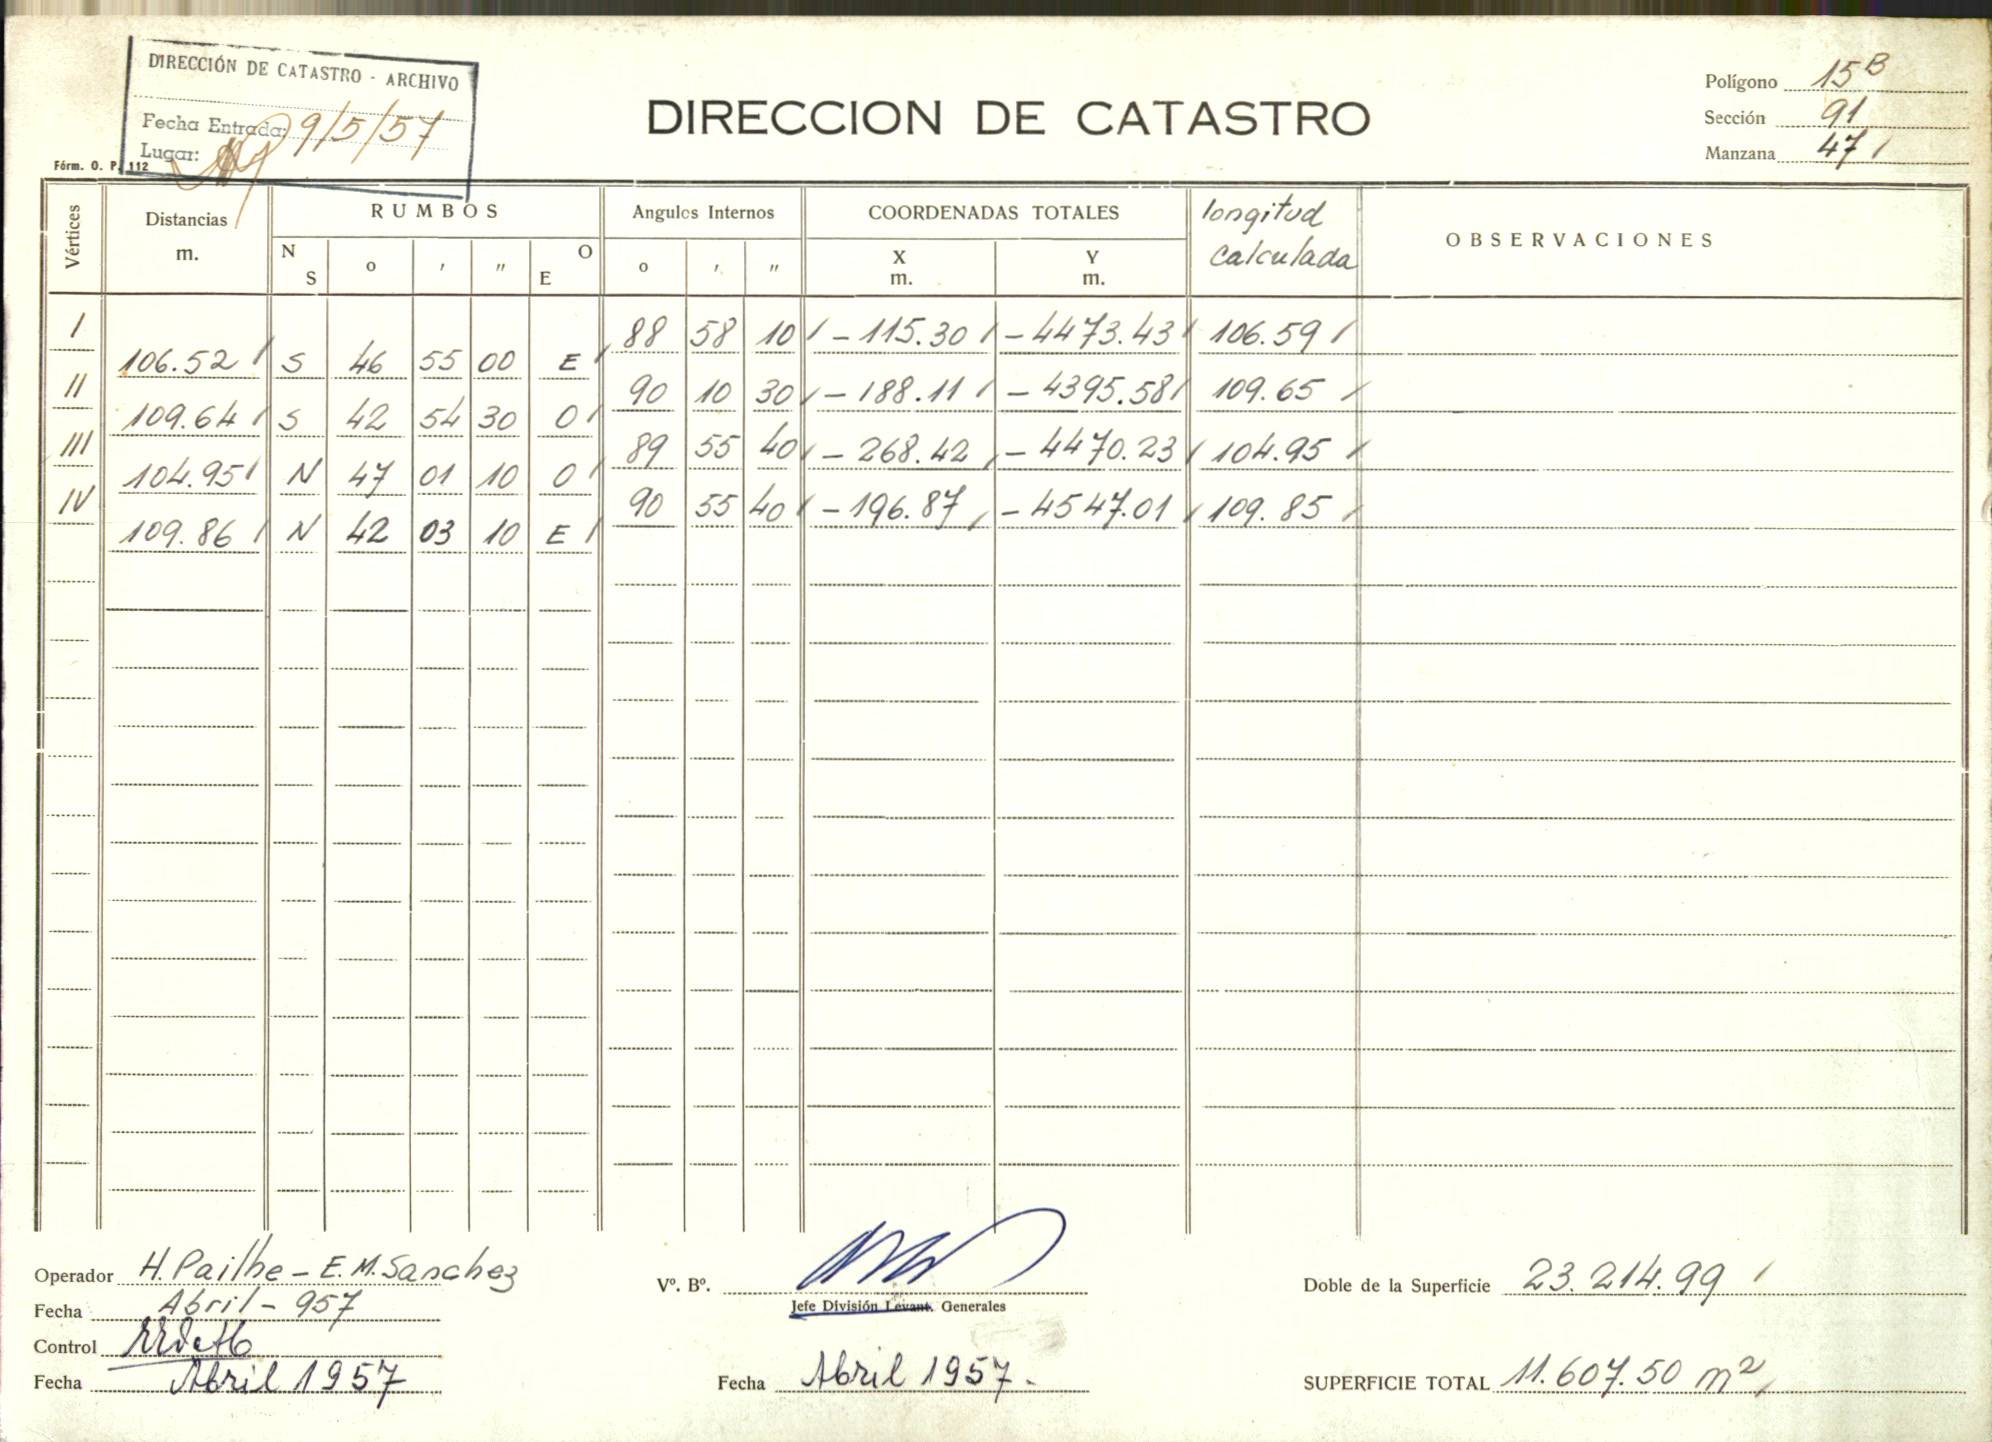 DIRECCIÓN DE CATASTRO - ARCHIVO
Fecha Entrada: 9/5/57
Lugar:
Fórm. O. P. 112
DIRECCION DE CATASTRO
Polígono 15 B
Sección 91
Manzana 47 /
Vértices Distancias m. RUMBOS Angulos Internos COORDENADAS TOTALES longitud calculada OBSERVACIONES
N S o ' " O E o ' " X m. Y m.
I 88 58 10 / - 115.30 / - 4473.43 / 106.59 /
106.52 / S 46 55 00 E /
II 90 10 30 / - 188.11 / - 4395.58 / 109.65 /
109.64 / S 42 54 30 O /
III 89 55 40 / - 268.42 / - 4470.23 / 104.95 /
104.95 / N 47 01 10 O /
IV 90 55 40 / - 196.87 / - 4547.01 / 109.85 /
109.86 / N 42 03 10 E /
Operador H. Pailhe - E. M. Sanchez
Fecha Abril - 957
Control
Fecha Abril 1957
Vº. Bº.
Jefe División Levant. Generales
Fecha Abril 1957.
Doble de la Superficie 23.214.99 /
SUPERFICIE TOTAL 11.607.50 m2 /